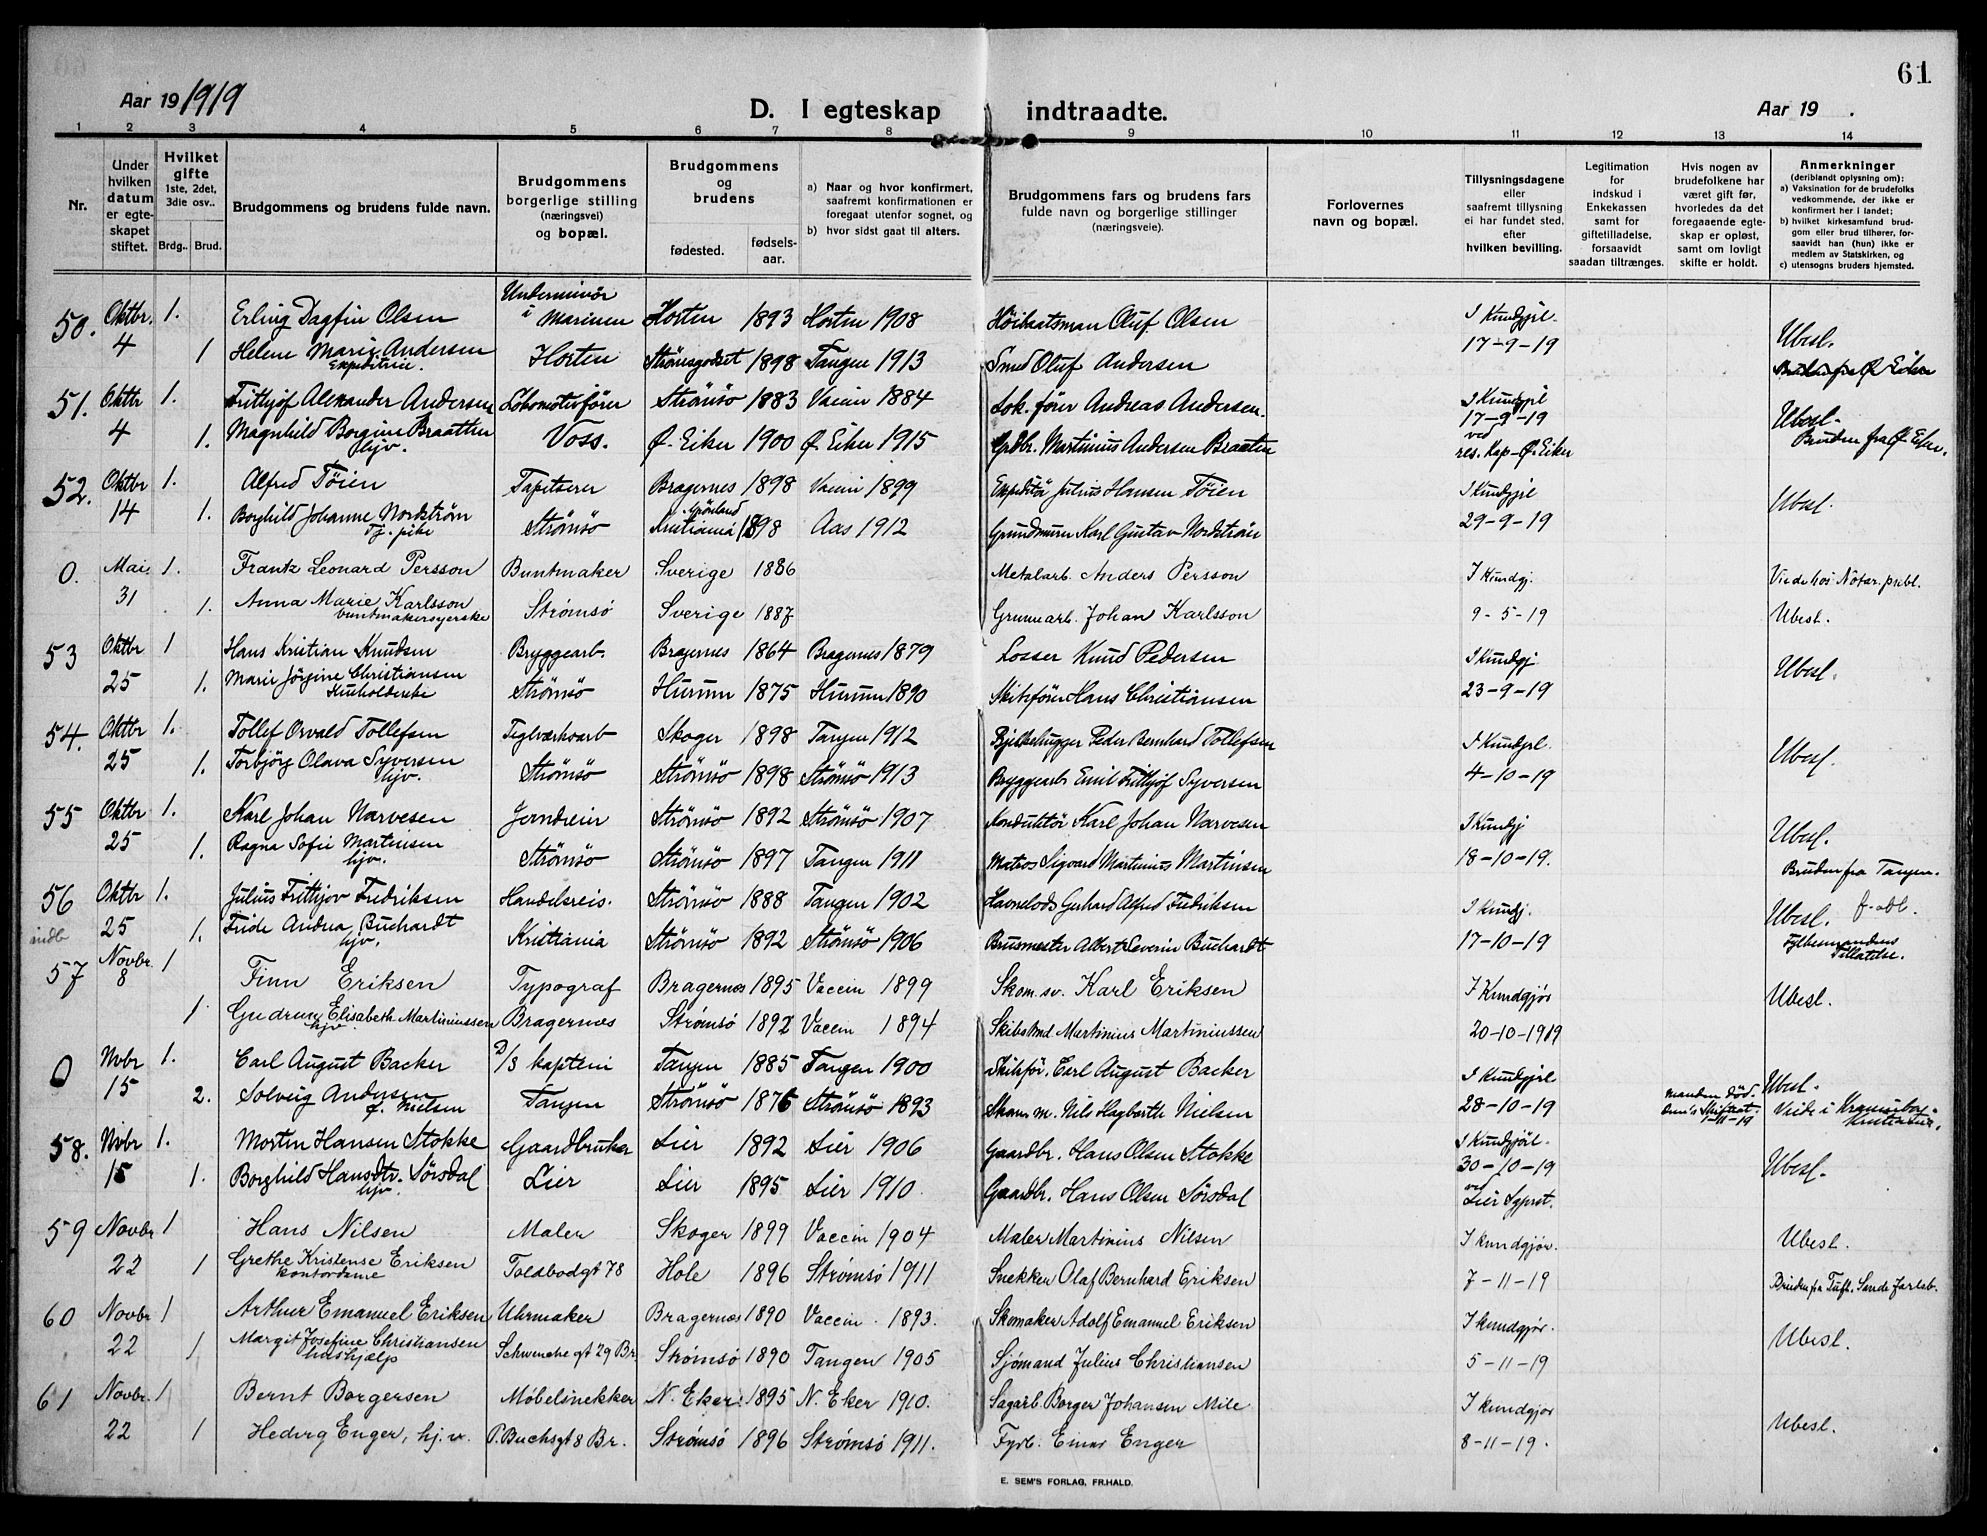 61
Aar 19 1919
D. I egteskap indtraadte.
Aar 19   .
1 2 3 4 5 6 7 8 9 10 11 12 13 14
Nr.
Under hvilken datum er egteskapet stiftet.
Hvilket gifte 1ste, 2det, 3die osv..
Brdg.. Brud.
Brudgommens og brudens fulde navn.
Brudgommens borgerlige stilling (næringsvei) og bopæl.
Brudgommens og brudens
fødested. fødsels-aar.
a) Naar og hvor konfirmert, saafremt konfirmationen er foregaat utenfor sognet, og
b) hvor sidst gaat til alters.
Brudgommens fars og brudens fars fulde navn og borgerlige stillinger (næringsveie).
Forlovernes navn og bopæl.
Tillysningsdagene eller saafremt tillysning ei har fundet sted, efter hvilken bevilling.
Legitimation for indskud i Enkekassen samt for giftetilladelse, forsaavidt saadan tiltrænges.
Hvis nogen av brudefolkene har været gift før, hvorledes da det foregaaende egteskap er opløst, samt om lovligt skifte er holdt.
Anmerkninger (deriblandt oplysning om):
a) Vaksination for de brudefolks vedkommende, der ikke er konfirmert her i landet;
b) hvilket kirkesamfund brudgom eller brud tilhører, forsaavidt han (hun) ikke er medlem av Statskirken, og
c) utensogns bruders hjemsted.
50. Oktbr. 1. Erling Dagfin Olsen Underminör i Marinen Horten 1893 Horten 1908 Höibaatsman Oluf Olsen I Kundgjrl. Ubesl.
4 1 Helene Marie Andersen Expeditrice. Horten Strömsgodset 1898 Tangen 1913 Smed Oluf Andersen 17-9-19
51. Oktbr 1. Frithjof Alexander Andersen Lokomotivförer Strömsö 1883 Vaccin 1884 Lok. förer Andreas Andersen. I Kundgjrl Ubesl.
4 1. Magnhild Borgine Braatten hjv. Voss. Ø. Eiker 1900 Ø. Eiker 1915 Grdbr. Martinius Andersen Braaten 17-9-19 ved res. Kap. Ø. Eiker Bruden fra Ø. Eiker.
52. Oktbr 1. Alfred Töien Tapetserer Bragernes 1898 Vaccin 1899 Expeditör Julius Hansen Töien I Kundgjrl Ubesl.
14 1. Borghild Johanne Nordström Tj. pike Strömsö Grönland Kristiania 1898 Aas 1912 Grundmurer Karl Gustav Nordström 29-9-19
0. Mai 1. Frantz Leonard Persson Buntmaker Sverige 1886 Metalarb. Anders Persson I Kundgj. Viede hos Notar. publ.
31 1. Anna Marie Karlsson buntmakersyerske Strømsö Sverige 1887 Johan Karlsson 9-5-19 Ubesl.
53 Oktbr 1 Hans Kristian Knudsen Bryggearb. Bragernes 1864 Bragernes 1879 Losser Knud Pedersen I Kundgj. Ubesl.
25 1. Marie Jörgine Christiansen Strömsö Hurum 1875 Hurum 1890 Skibsförer Hans Christiansen 23-9-19
54. Oktbr 1. Tollef Orvald Tollefsen Teglværksarb Skoger 1898 Tangen 1912 Bjelkehugger Peder Bernhard Tollefsen I Kundgjrl. Ubesl.
25 1. Torbjörg Olava Syversen hjv. Strömsö Strömsö 1898 Strömsö 1913 Bryggearb Emil Frithjof Syversen 4-10-19
55 Oktbr 1. Karl Johan Narvesen Jerndreier Strömsö 1892 Strömsö 1907 Konduktör Karl Johan Narvesen I Kundgj Ubesl.
25 1. Ragna Sofie Martinsen hjv. Strömsö Strömsö 1897 Tangen 1911 Matros Sigvard Martinius Martinsen 18-10-19. Bruden fra Tangen.
56 Oktbr 1. Julius Frithjov Fredriksen Handelsreis. Strömsö 1888 Tangen 1902 Havnelods Gerhard Alfred Fredriksen I Kundj. Ubesl.
indb 25 1. Fride Andrea Buchardt hjv. Kristiania Strömsö 1892 Strömsö 1906 Brusmester Albert Severin Buchardt 17-10-19 Fylkesmandens Tillatelse.
57 Novbr. 8 1 Finn Eriksen Typograf Bragernes 1895 Vaccin 1899 Skom. sv. Karl Eriksen I Kundgjør Ubesl.
1 Gudrun Elisabeth Martiniussen hjv. Bragernes Strömsö 1892 Vaccin 1894 Skibstmd Martinius Martiniussen 20-10-1919
0 Nvbr 1. Carl August Backer D/S kaptein Tangen 1885 Tangen 1900 Skibsför. Carl August Backer I Kundgjrl Ubesl.
15 2. Solveig Andersen f. Nielsen Tangen Strömsö 1876 Strömsö 1893 Skom. m. Nils Hagbarth Nielsen 28-10-19 Manden död. Viede i Kristiania.
58. Nvbr 1. Morten Hansen Stokke Gaardbruker Lier 1892 Lier 1906 Gaardbr. Hans Olsen Stokke I Kundgjörl. Ubesl.
15 1. Borghild Hansdtr. Sörsdal hjv. Lier Lier 1895 Lier 1910. Gaardbr. Hans Olsen Sörsdal 30-10-19 ved Lier Sgprst.
59 Novbr 1 Hans Nilsen Maler Skoger 1899 Vaccin 1904 Maler Martinius Nilsen I kundgjør. Ubesl.
22 1 Grethe Kristense Eriksen kontordame Toldbodgt 78 Hole 1896 Strømsö 1911 Snekker Olaf Bernhard Eriksen 7-11-19 Bruden fra Tuft. Sande Jarlsb.
60 Novbr 1 Arthur Emanuel Eriksen Uhrmaker Bragernes 1890 Vaccin 1893. Skomaker Adolf Emanuel Eriksen I kundgjør. Ubesl.
22 1 Margit Josefine Christiansen hushjælp Schwenche gt 29 Br. Strömsö 1890 Tangen 1905 Sjömand Julius Christiansen 5-11-19
61 Novbr. 1 Bernt Borgersen Møbelsnekker N. Eker 1895 N. Eker 1910. Sagarb. Borger Johansen Mile I kundgjør Ubesl.
22 1 Hedvig Enger, hj.v. P. Buchsgt 8 Br. Strömsö 1896 Strömsö 1911. Fyrb. Einar Enger 8-11-19.
E. SEM'S FORLAG, FR.HALD.